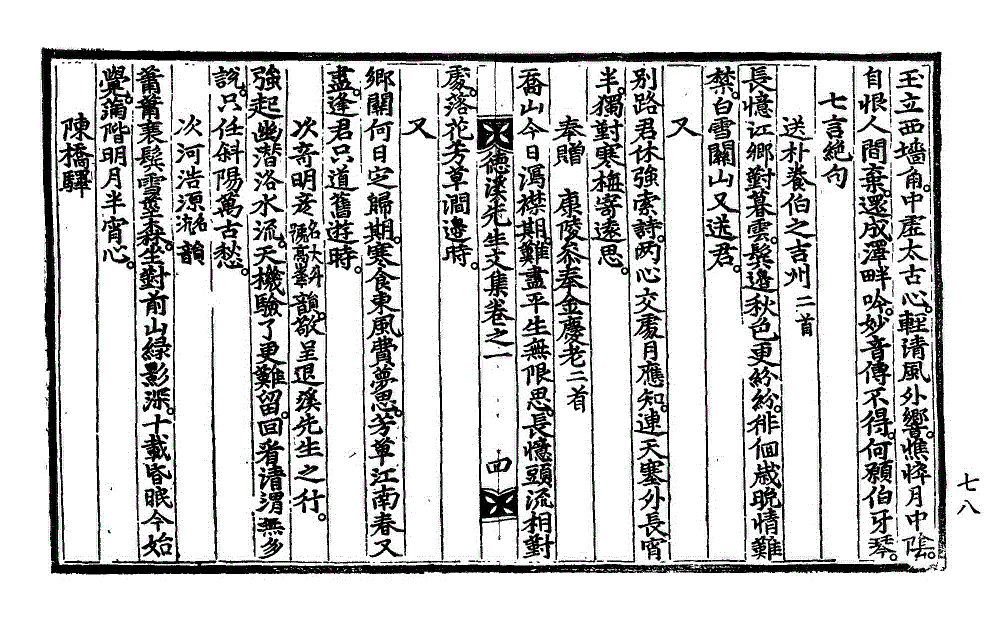 玉立西墻角。中虛太古心。輕淸風外響。憔悴月中陰。
自恨人間棄。還成澤畔吟。妙音傳不得。何願伯牙琴。
七言絶句
送朴養伯之吉州 二首
長憶江鄕對暮雲。鬂邊秋色更紛紛。徘徊歲晩情難
禁。白雪關山又送君。
又
別路君休強索詩。兩心交處月應知。連天塞外長宵
半。獨對寒梅寄遠思。
奉贈 康陵參奉金慶老 二首
喬山今日瀉襟期。難盡平生無限思。長憶頭流相對
德溪先生文集卷之一 四
處。落花芳草澗邊時。
又
鄕關何日定歸期。寒食東風費夢思。芳草江南春又
盡。逢君只道舊遊時。
次奇明彦 名大升號高峯 韻。敬呈退溪先生之行。
強起幽潛洛水流。天機驗了更難留。回看淸渭無多
說。只任斜陽萬古愁。
次河浩源 名沆 韻
蕭蕭衰鬂雪垂森。坐對前山綠影深。十載昏眠今始
覺。滿階明月半宵心。
陳橋驛
七八